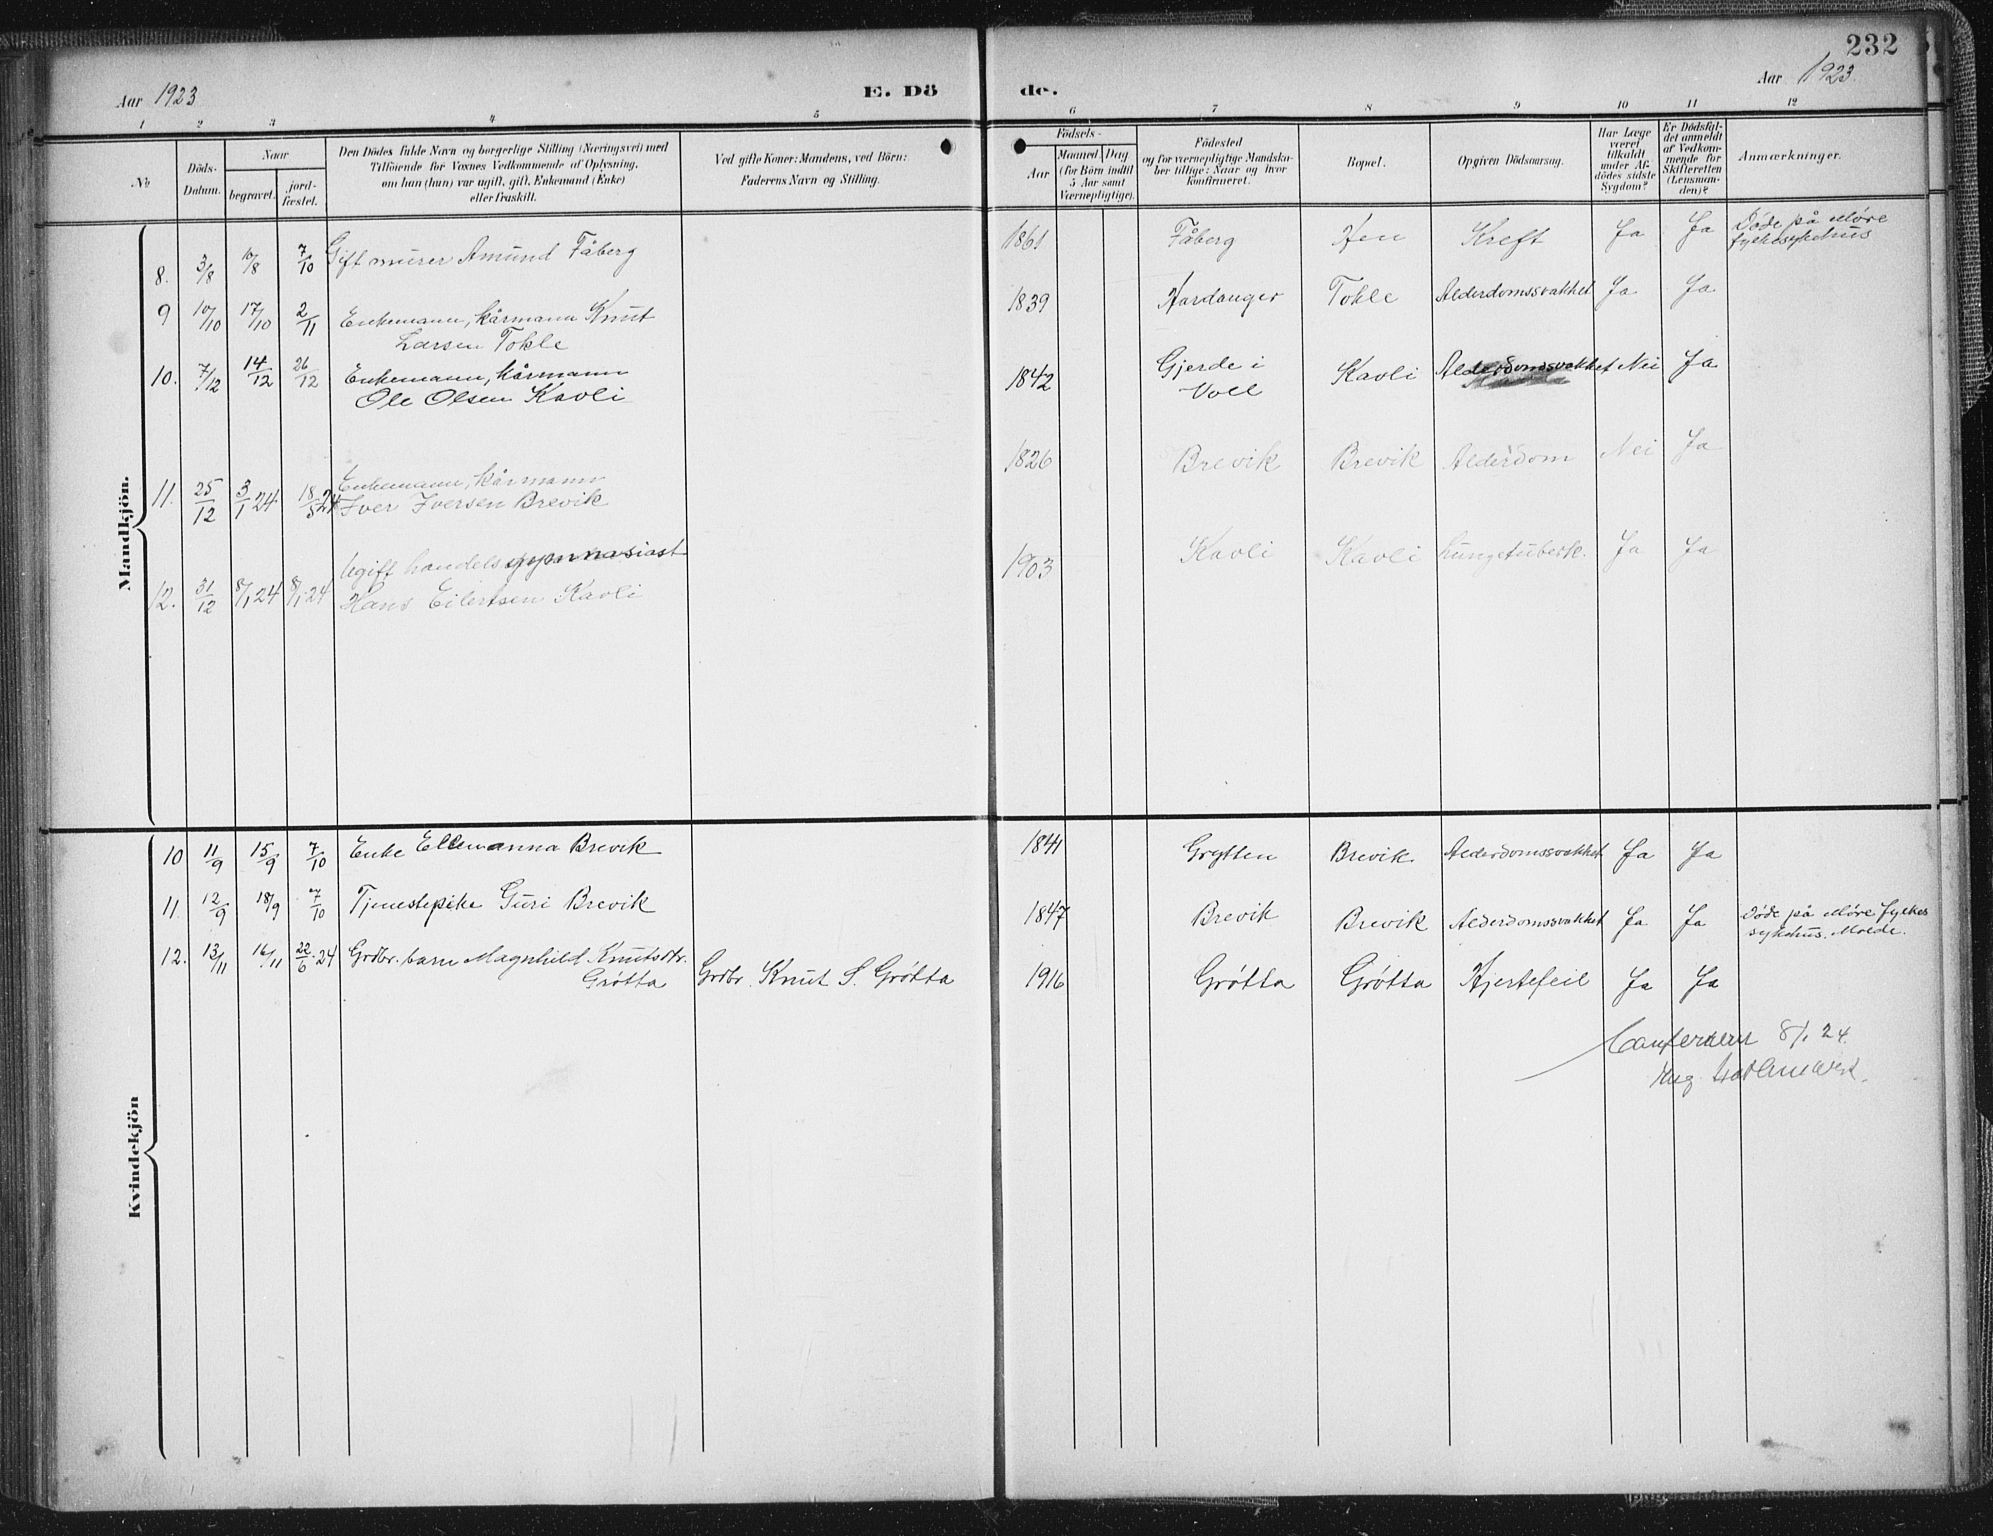 232
Aar 1923
E. Dö
de.
Aar 1923.
1 2 3 4 5 6 7 8 9 10 11 12
No
Döds-
Datum.
Naar
begravet.
jord-
fæstet.
Den Dödes fulde Navn og borgerlige Stilling (Næringsvei) med
Tilföiende for Voxnes Vedkommende af Oplysning,
om han (hun) var ugift, gift, Enkemand (Enke)
eller fraskilt.
Ved gifte Koner: Mandens, ved Börn:
Faderens Navn og Stilling.
Födsels-
Aar
Maaned Dag
(for Börn indtil
5 Aar samt
Værnepligtige).
Födested
og for værnepligtige Mandska-
ber tillige: Naar og hvor
konfirmeret.
Bopæl.
Opgiven Dödsaarsag.
Har Læge
været
tilkaldt
under Af-
dödes sidste
Sygdom?
Er Dödsfal-
det anmeldt
af Vedkom-
mende for
Skifteretten
(Lensman-
den)?
Anmærkninger.
Mandkjön.
8. 3/8 10/8 7/10 Gift murer Amund Fåberg 1861 Fåberg Hen Kreft Ja Ja Døde på Møre
fylkessykehus
9 10/10 17/10 2/11 Enkemann, kårmann Knut
Larsen Tokle 1839 Hardanger Tokle Alderdomssvakhet Ja Ja
10. 7/12 14/12 26/12 Enkemann, kårmann
Ole Olsen Kavli 1842 Gjerde i
Voll Kavli Alderdomssvakhet Nei Ja
11. 25/12 3/1 24 18/5 24 Enkemann, kårmann
Iver Iversen Brevik 1826 Brevik Brevik Alderdom Nei Ja
12. 31/12 8/1 24 8/1 24 Ugift handelsgymnasiast
Hans Eilertsen Kavli 1903 Kavli Kavli Lungetuberk. Ja Ja
Kvindekjön
10 11/9 15/9 7/10 Enke Ellenanna Brevik 1841 Grytten Brevik Alderdomssvakhet Ja Ja
11. 12/9 18/9 7/10 Tjenestepike Guri Brevik 1847 Brevik Brevik Alderdomssvakhet Ja Ja Døde på Møre fylkes
sykehus. Molde.
12. 13/11 16/11 22/6 24 Grdbr. barn Magnhild Knutsdtr.
Grøtta Grdbr. Knut S. Grøtta 1916 Grøtta Grøtta Hjertefeil Ja Ja
Confereret 8/1 24.